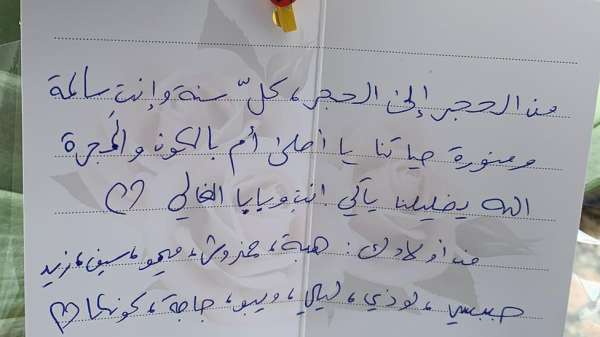 من الحجر إلى الحجر، كلّ سنة وإنتِ سالمة
ومنورة حياتنا يا أحلى أم بالكون والمجرة
الله يخليلنا ياكي إنتِ وبابا الغالي ♡
من أولادك: هبة، حمزوش، ميمو، سيف، زيد
حبسي، لوذي، ليلي، ويبو، جاجة، كونها ♡